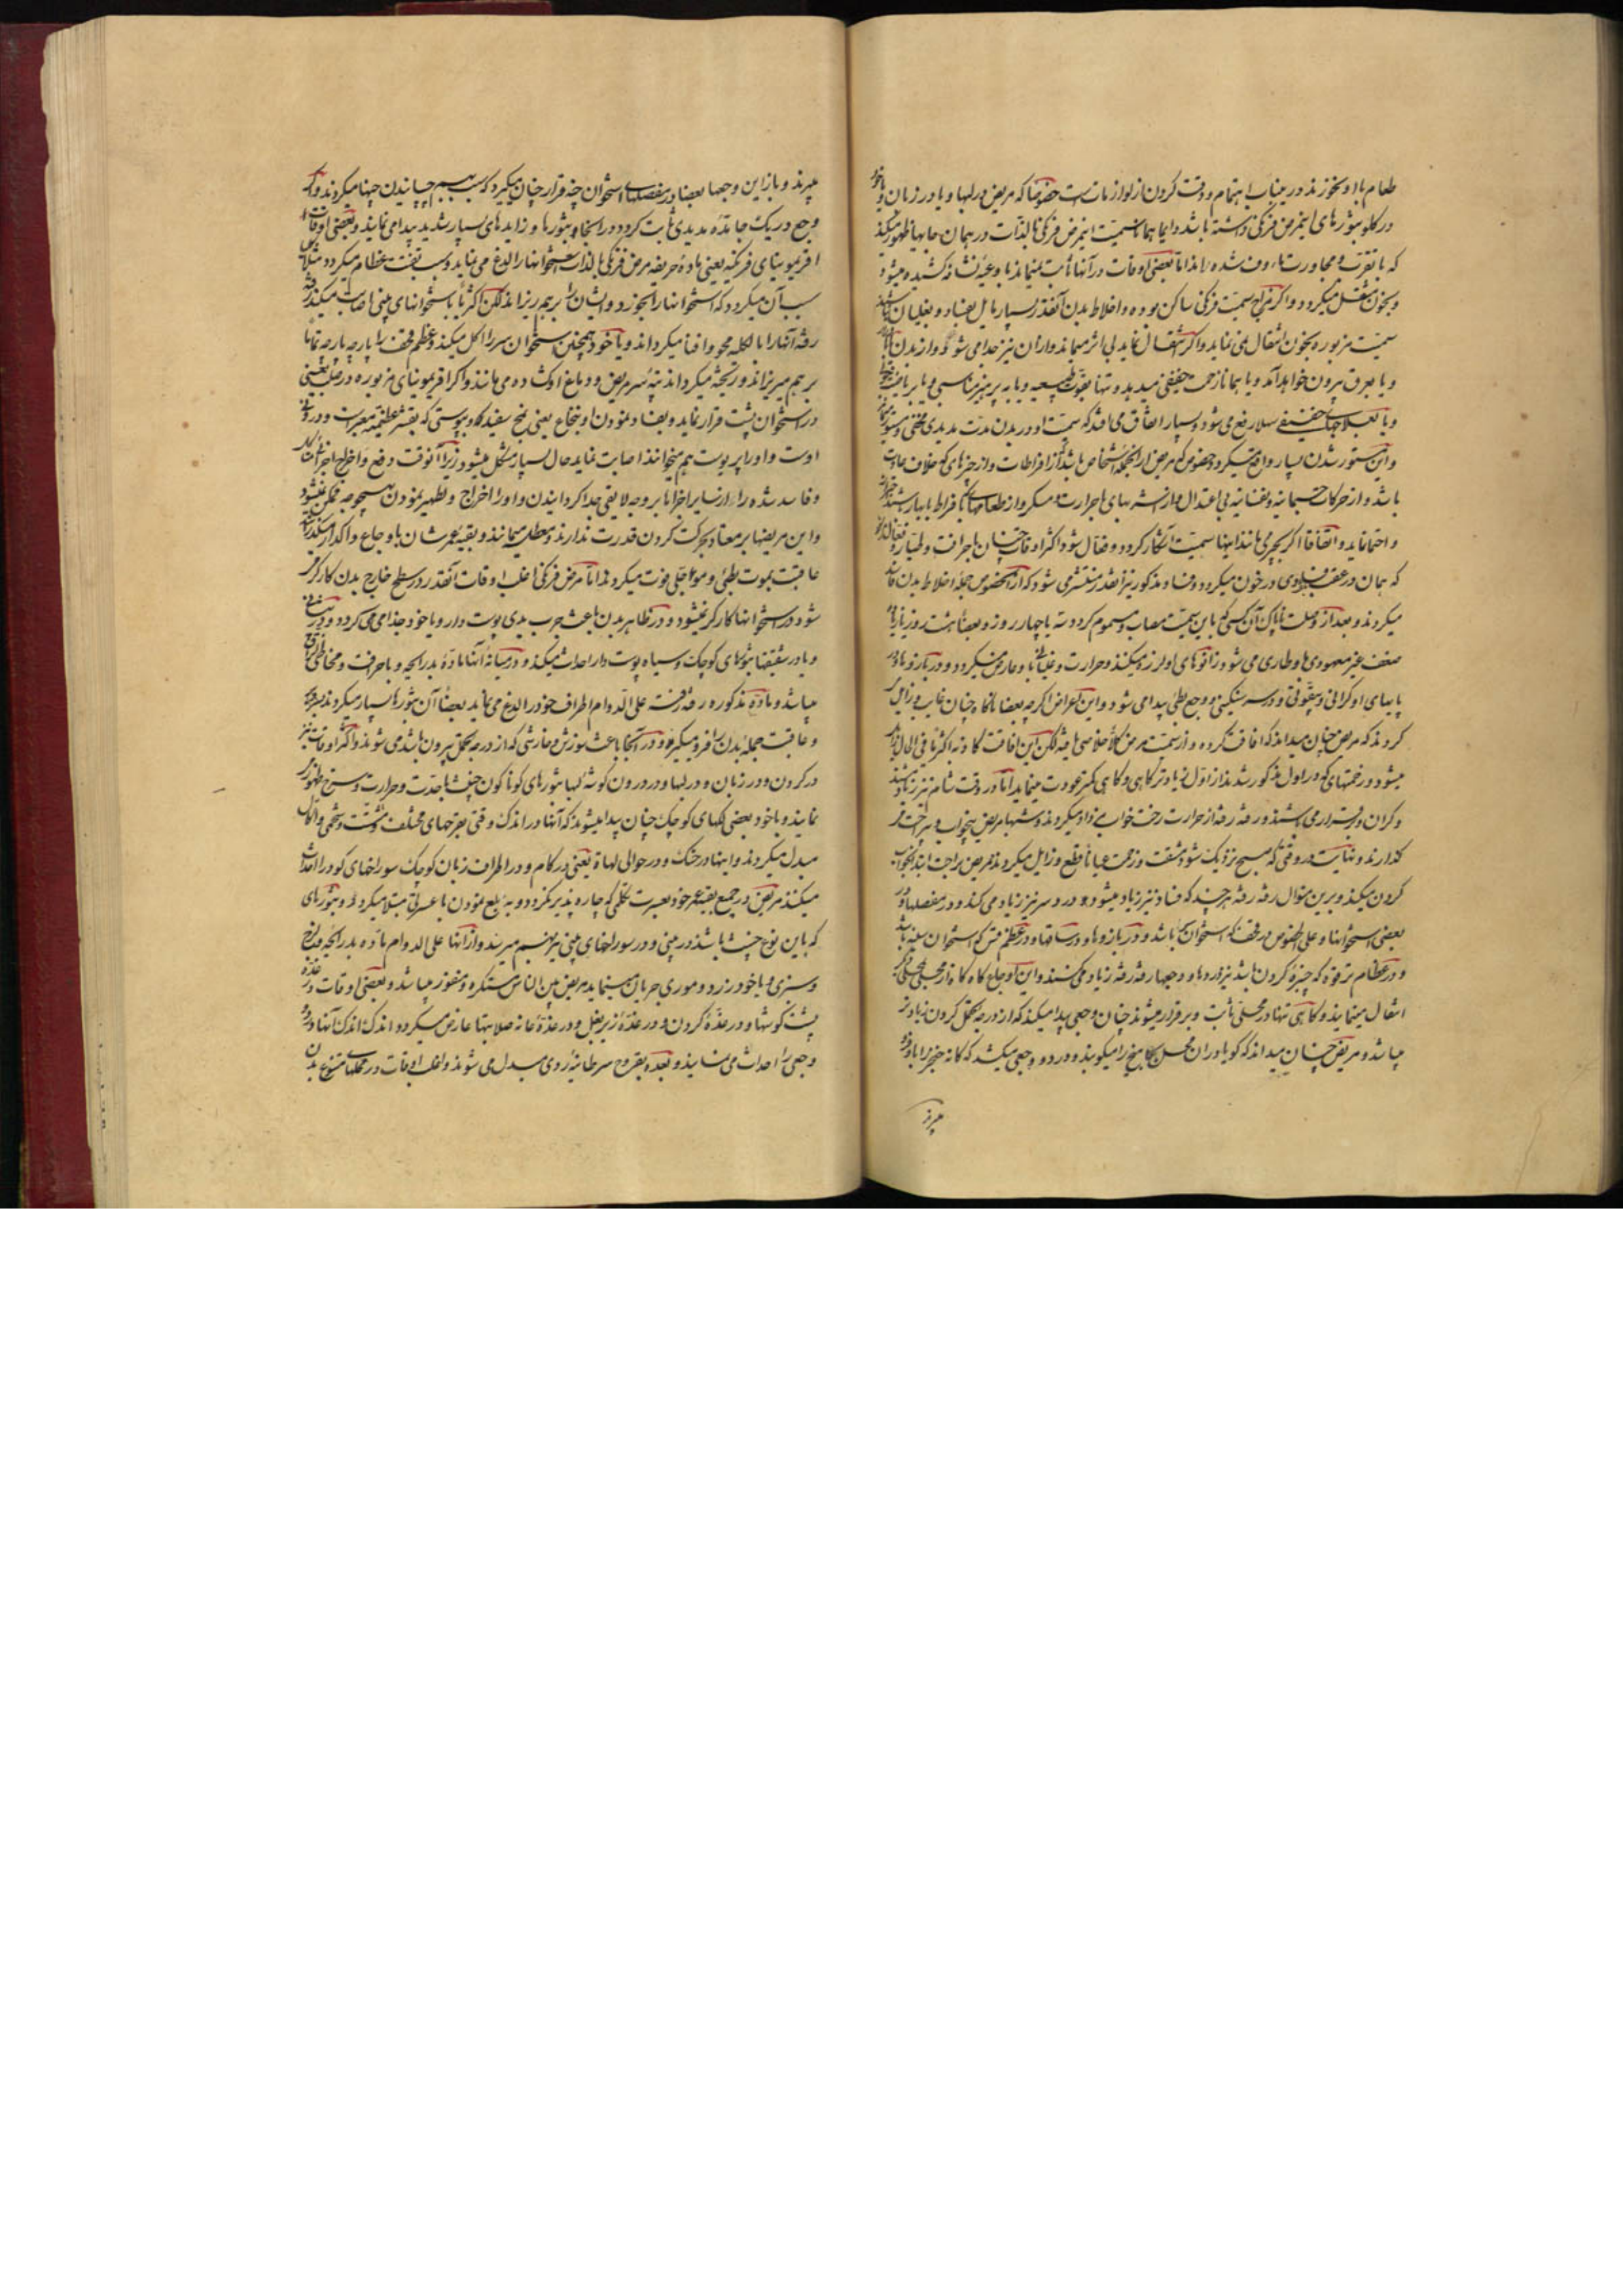 طعام با او بخورند در اینباب اهتمام و دقت کردن از لوازمات است خصوصا که مریض در لبها و یا در زبان و یا خود
در کلو بثورهای اینمرض فرنکی داشته باشد دایما همان سمیت اینمرض فرنکی بالذات در همان جایها ظهور میکند
که با تقرب و مجاورت مأوف شده‌اند اما بعضی اوقات در آنها ثابت نمیماند باوعیه کشیده میشود
و بخون منتقل میکردد و اکر مزاج سمیت فرنکی ساکن بوده و اخلاط بدن آنقدر بسیار مایل بفساد و بغلیان نباشند
سمیت مزبوره بخون انتقال نمی نماید و اکر انتقال نماید بی اثر میماند و از آن نیز جدا می شود و از بدن
و یا بعرق بیرون خواهد آمد و یا همانا زحمت خفیفی میدهد و تنها بقوت طبیعیه و یا به پرهیز مناسبی و یا بریاضت
و یا بعلاجهای خفیف سهلا رفع می شود و بسیار اتفاق می افتد که سمیت او در بدن مدت مدیدی مخفی و مستور بماند
و این مستور شدن بسیار واقع میکردد خصوص که مریض از آنجمله اشخاص باشد که از افراطات و از چیزهای که خلاف عادت
باشد و از حرکات جسمانیه و نفسانیه بی اعتدال و از شربهای با حرارت و مسکر و از طعامهای با افراط بابهار
و احتما نماید و اتفاقا اکر بچیزی مانند اینها سمیت آشکار کردد و فعال شود اکثر اوقات چنان با حرافت و طیار و فعال
که همان در عقب در خون میکردد و فساد مذکور نیز آنقدر منتشر می شود که از آنخصوص جمله اخلاط بدن فاسد
میکردند و بعد از وصلت ناپاک آن کسی که باین سمیت مصاب و مسموم کردد سه یا چهار روز و بعضا هشت روز
ضعف غیر معهودی باو طاری می شود زانوهای او لرزه میکنند و حرارت و غلیانی باو عارض میکردد و در بازوها و در
پایهای او کرانی و در سر سنکینی و وجع بطئی پیدا می شود و این اعراض اکرچه بعضا ناکاه چنان غایب و زایل
کردند که مریض چنان میداند که افاقت کرده و از سمیت مرض کلا خلاصی یافته لکن این افاقت کاذبه اکثریا فی الحال زایل
میشود و زحمتهای که در اول مذکور شدند از اول زیادتر کاهی و کاهی کمتر عودت مینماید اما در وقت شام نیز زیاد میشوند
و کران و برقرار می باشند و رفته رفته از حرارت رخت خواب زیاد میکردند و شبها مریض بیخواب و بی راحت
کذارند و نهایت در وقتی که صبح نزدیک شود مشقت و زحمت عیانا قطع و زایل میکردند مریض براحت ابتدا بخواب
کردن میکند و برین منوال رفته رفته هر چند که فساد نیز زیاد میشود درد سر نیز زیاد می کند و در مفصلها و در
بعضی استخوانها و علی الخصوص در قحف که استخوان سر باشد و در بازوها و در ساقها و در عظم قس که استخوان سینه باشد
و در عظام ترقوه که چنبره کردن باشد نیز دردها و وجعها رفته رفته زیاد می کنند و این اوجاع کاه کاه از محلی بمحلی دیگر
انتقال مینمایند و کاهی تنها در محلی ثابت و برقرار میشوند چنان وجعی پیدا میکند که از درجه تحمل کردن زیادتر
میباشد و مریض چنان میداند که کویا در آن محل بجا میخ را میکوبند و درد و وجعی میکشد که کانه خنجر را باو فرو
میبرند
میبرند و باز این وجعها بعضا در مفصلهای استخوان چند قرار چنان میکیرد که سبب بهم چپانیدن جنبها میکردند و اکر
وجع در یک جا بمدت مدیدی ثابت کردد در آنجا و بثورها و زایدهای بسیار شدید پیدا می نمایند و بعضی اوقات
افرنمو سینای فرنکیه یعنی ماده حریفه مرض فرنکی بالذات استخوانها را لدغ می نماید و سبب تفتت عظام میکردد مثلا
سبب آن میکردد که استخوانها را بخورد و ایشان را برهم ریزاند لکن اکثریا باستخوانهای بینی اصابت میکند رفته
رفته آنها را بالکلیه محو و افنا میکرداند و یا خود همچنین استخوان سر را اکل میکند و عظم قحف را پارچه پارچه تماما
برهم میریزاند و ریخته میکرداند تپه سر مریض و دماغ او کشاده می مانند و اکر افرنمو سینای مزبوره در صلب یعنی
در استخوان پشت قرار نماید و بفساد نمودن او نخاع یعنی مخ سفید که او پوستی که بقشر عظیمیه معبر است و در درون
اوست و او را پریوست هم میخوانند اصابت نماید حال بسیار مشکل میشود زیرا آنوقت دفع و اخراج اجزاء
و فاسد شده را از سایر اجزا بر وجه لایقی جدا کردانیدن و او را اخراج و تطهیر نمودن بهیچ وجه ممکن نمیشود
و این مریضها بر معتاد بحرکت کردن قدرت ندارند و معطل میمانند و بقیه عمرشان با اوجاع و اکدار میکذرانند
عاقبت بموت بطئی و موعا جلی فوت میکردند اما مرض فرنکی اغلب اوقات آنقدر در سطح خارج بدن کارکر
شود در استخوانها کارکر نمیشود و در ظاهر بدن باعث جرب بدی پوست دار و یا خود جذامی می کردد و در پیشانی
و یا در شقیقها بثورهای کوچک و سیاه پوست دار احداث میکند و در میانه آنها ماده بد رایحه و با حرافت و مخاطی واقع
میباشد و ماده مذکوره رفته رفته علی الدوام اطراف خود را لدغ می نماید بعضا آن بثورها بسیار میکردند
و عاقبت جمله بدن را فرو میکیرد و در آنجا باعث سوزش و خارشی که از درجه تحمل بیرون باشد می شوند و اکثر اوقات نیز
در کردن و در زبان و در لبها و در درون کوشه لبها بثورهای کوناکون خبیث با حدت و حرارت و سرخ ظهور
نمایند و یا خود بعضی لکهای کوچک چنان پیدا میشوند که آنها در اندک وقتی بقرحهای مختلف و مشتت و شحمی و اکال
مبدل میکردند و اینها در حنک و در حوالی لهاة یعنی در کام و در اطراف زبان کوچک سوراخهای کود را احداث
میکنند مریض در جمیع بقیه عمر خود بعسرت تکلمی که چاره پذیر نکردد و به بلع نمودن با عسرتی مبتلا میکردد و بثورهای
که باین نوع خبیث باشند در بینی و در سوراخهای بینی نیز بهم میرسند و از آنها علی الدوام ماده بد رایحه و لزج
و سبزی و یا خود زرد و موری جریان مینماید مریض بین الناس مستکره و منفور میباشد و بعضی اوقات در غده
پشت کوشها و در غده کردن و در غده زیر بغل و در غده عانه صلابتها عارض میکردد و اندک اندک آنها ورم
وجعی را احداث می نمایند و بعده بقروح سرطانیه ردی مبدل می شوند و اغلب اوقات در محلهای متنوع بدن